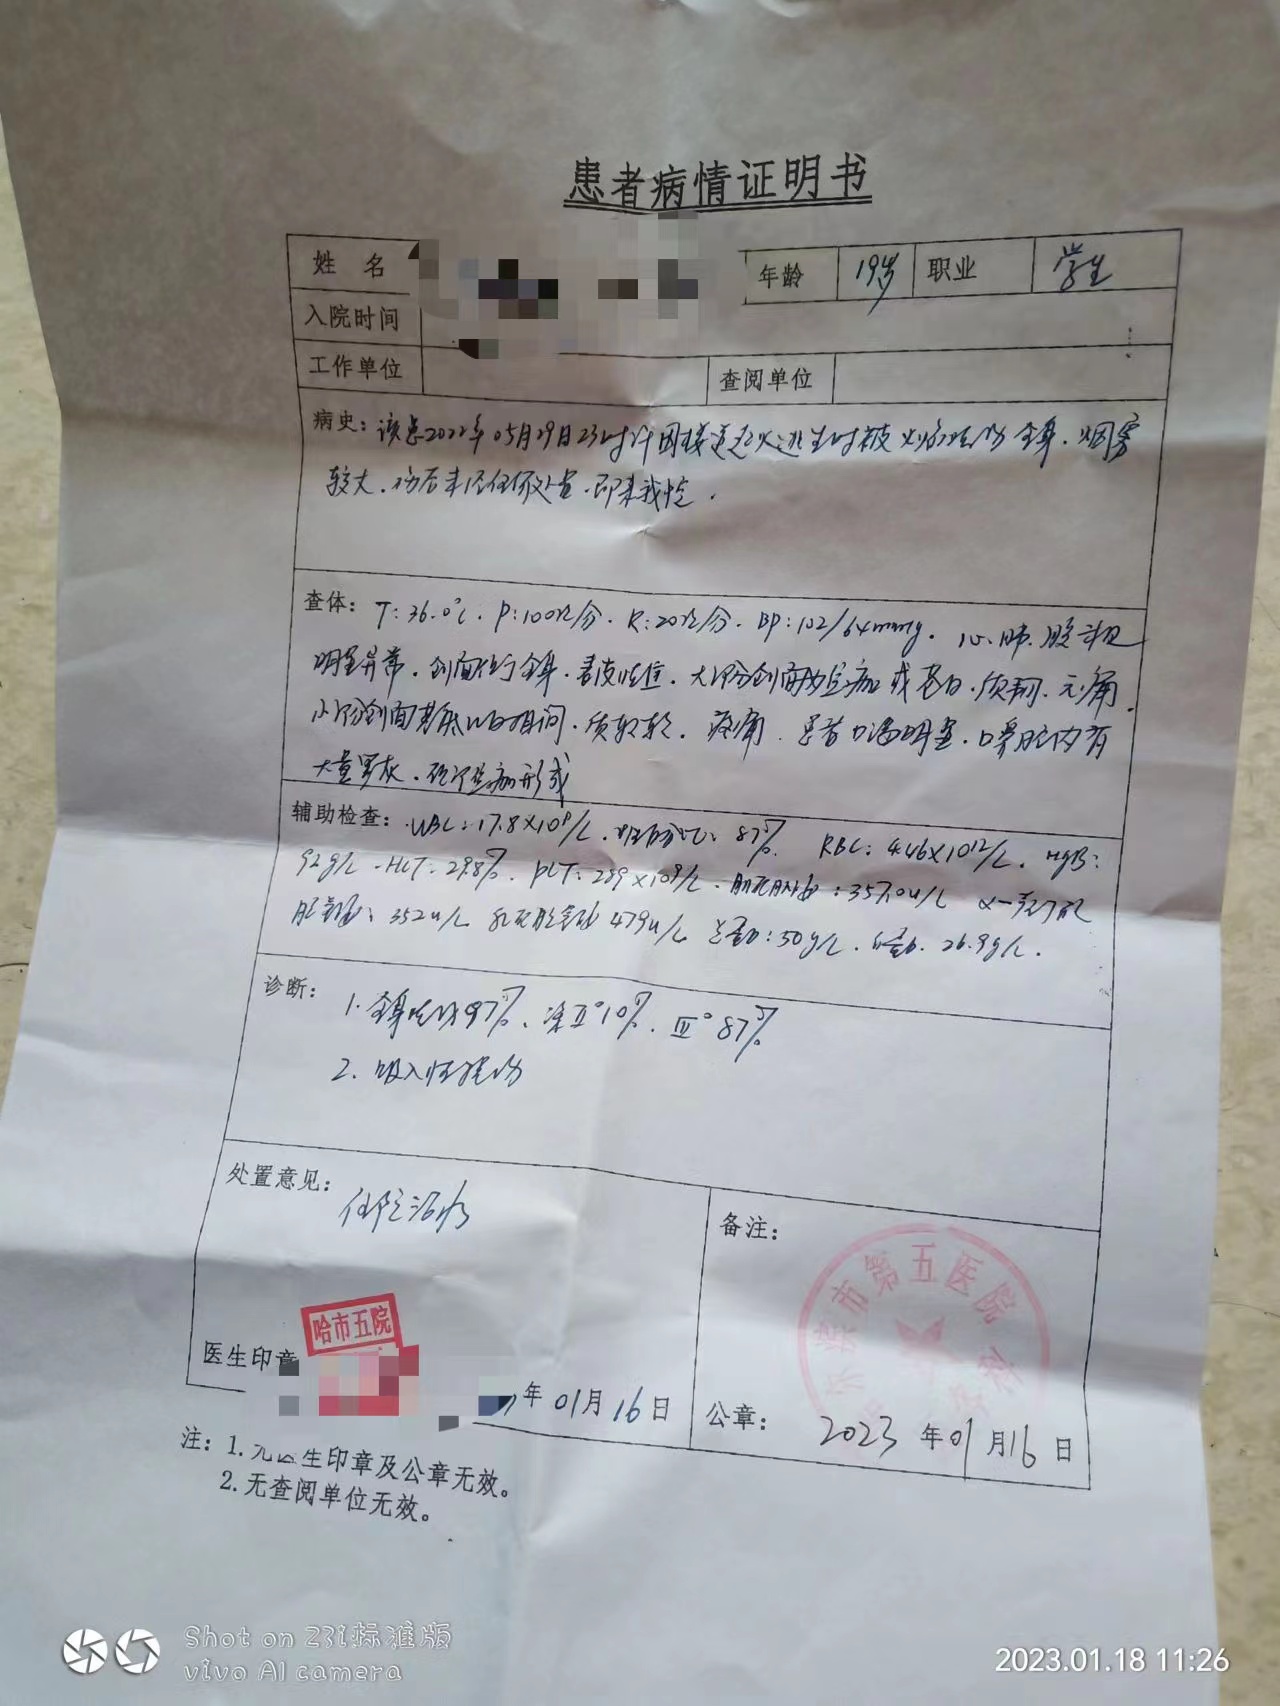 患者病情证明书
姓 名 年龄 19岁 职业 学生
入院时间
工作单位 查阅单位
病史：该患2022年05月29日23时许因楼道起火逃生时被火焰烧伤全身，烟雾
较大，伤后未经任何处置，即来我院．
查体：T：36.0℃．P：100次/分．R：20次/分．BP：102/64mmHg．心．肺．腹未见
明显异常．创面位于全身．表皮 大部分创面 焦痂或苍白．质韧．无痛．
小部分创面基底红白相间．质较软．疼痛．患者口渴明显．口鼻腔内有
大量黑灰． 焦痂形成
辅助检查：WBC：17.8×10⁹/L． 87% RBC：4.46×10¹²/L．HgB：
92g/L．HCT：29.8%．PLT：289×10⁹/L． ：357.0u/L α-羟丁酸
脱氢酶：352u/L 乳酸脱氢酶479u/L 总蛋白：50g/L．白蛋白．26.9g/L．
诊断： 1．全身烧伤97%、深Ⅱ°10%．Ⅲ°87%
2．吸入性损伤
处置意见： 住院治疗
备注：
市第五医院
哈市五院
医生印章 年01月16日
公章： 2023年01月16日
注：1.无医生印章及公章无效。
2.无查阅单位无效。
Shot on Z3i标准版
vivo AI camera
2023.01.18 11:26